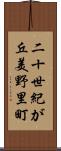 二十世紀が
丘美野里町